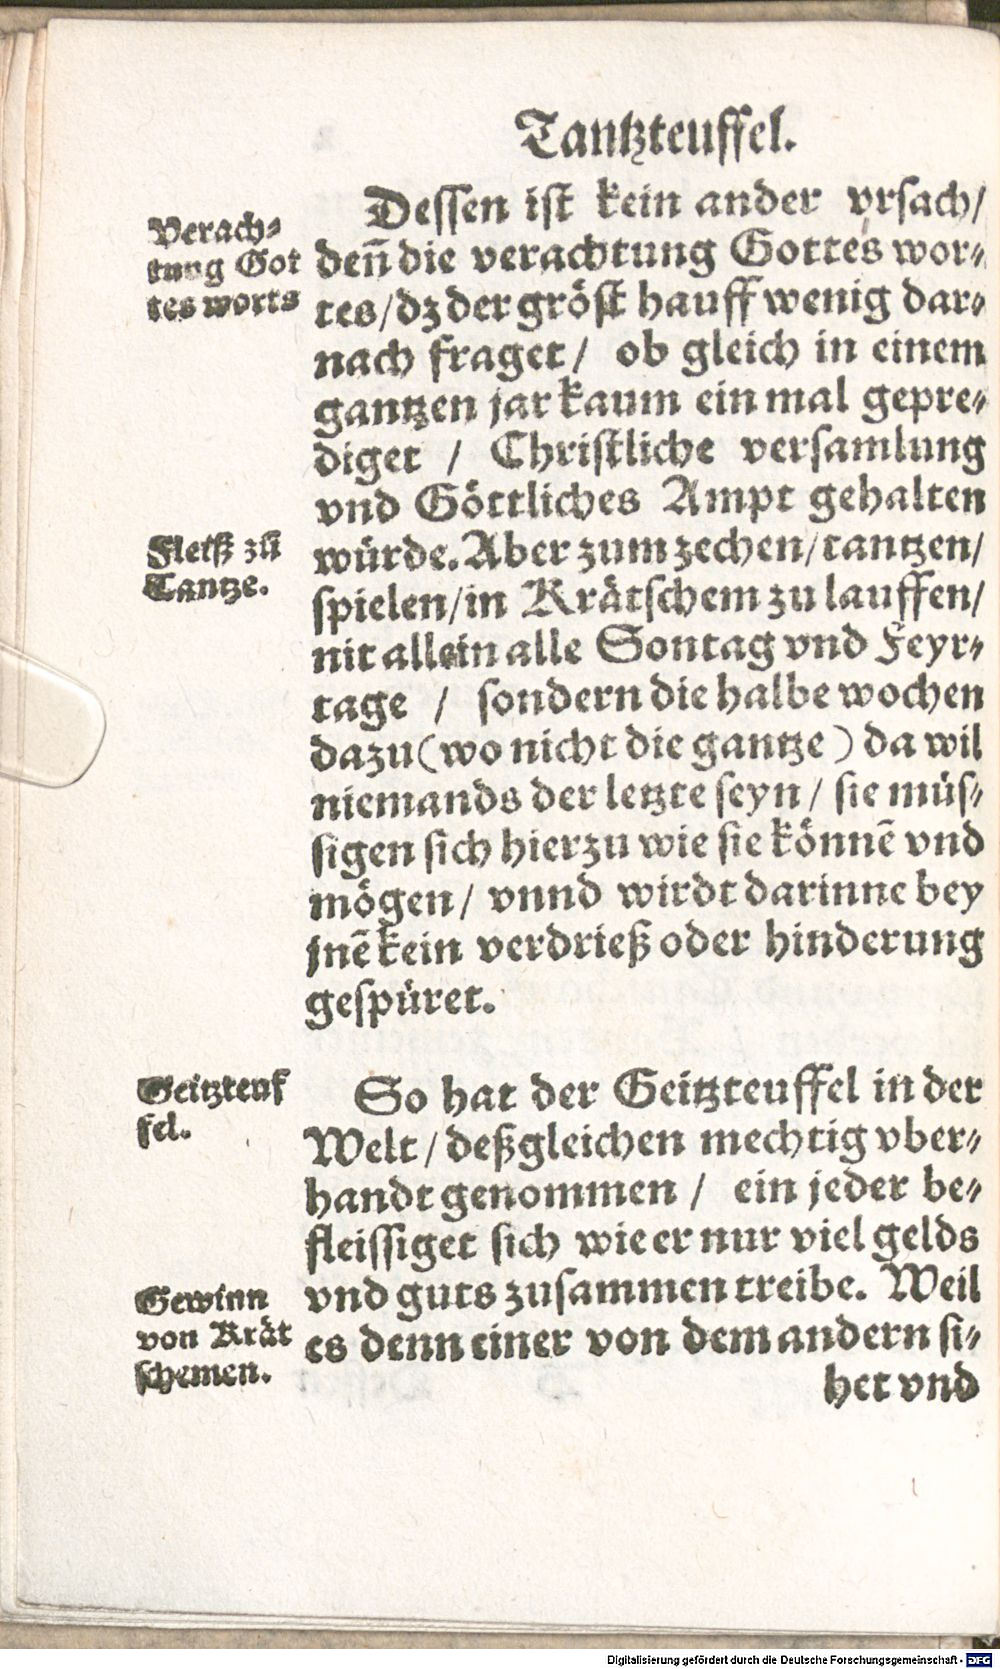 Tantzteuffel.
Verach⸗
tung Got
tes worts
Dessen ist kein ander vrsach/
deñ die verachtung Gottes wor⸗
tes/dz der gröst hauff wenig dar⸗
nach fraget/ ob gleich in einem
gantzen jar kaum ein mal gepre⸗
diget / Christliche versamlung
vnd Göttliches Ampt gehalten
Fleiß zů
Tantze.
würde. Aber zum zechen/tantzen/
spielen/in Krätschem zu lauffen/
nit allein alle Sontag vnd Feyr⸗
tage / sondern die halbe wochen
dazu(wo nicht die gantze) da wil
niemands der letzte seyn/ sie müs⸗
sigen sich hierzu wie sie könnẽ vnd
mögen/ vnnd wirdt darinne bey
jnẽ kein verdrieß oder hinderung
gespüret.
Geitzteuf
fel.
So hat der Geitzteuffel in der
Welt/deßgleichen mechtig vber⸗
handt genommen / ein jeder be⸗
fleissiget sich wie er nur viel gelds
Gewinn
von Krät
schemen.
vnd guts zusammen treibe. Weil
es denn einer von dem andern si⸗
het vnd
Digitalisierung gefördert durch die Deutsche Forschungsgemeinschaft - DFG